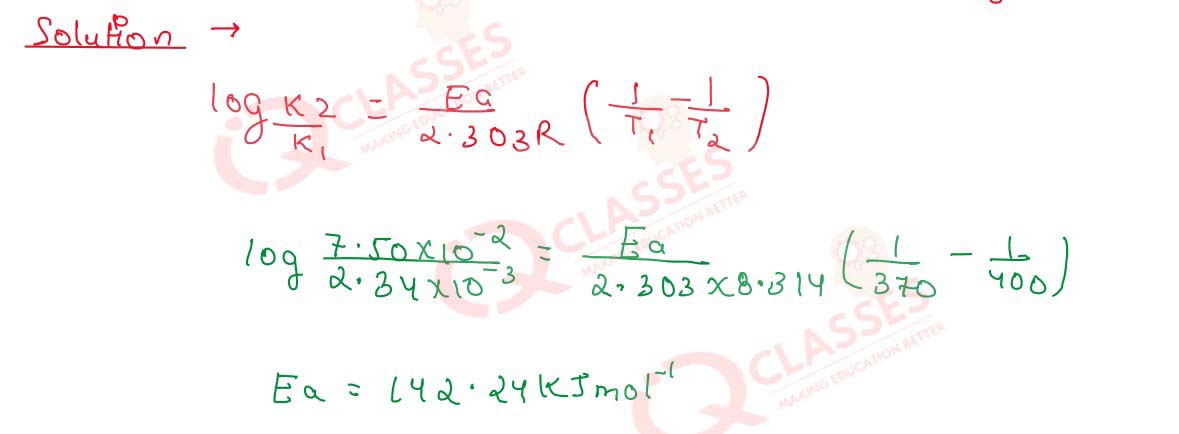 Solution →
log K2/K₁ = Ea/2.303R (1/T₁ - 1/T₂)
log 7.50×10⁻²/2.34×10⁻³ = Ea/2.303×8.314 (1/370 - 1/400)
Ea = 142.24KJmol⁻¹
QCLASSES
MAKING EDUCATION BETTER
QCLASSES
MAKING EDUCATION BETTER
QCLASSES
MAKING EDUCATION BETTER